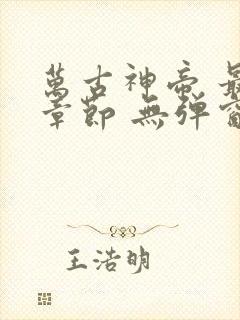 萬古神帝 最
章節 無彈窗
王浩明